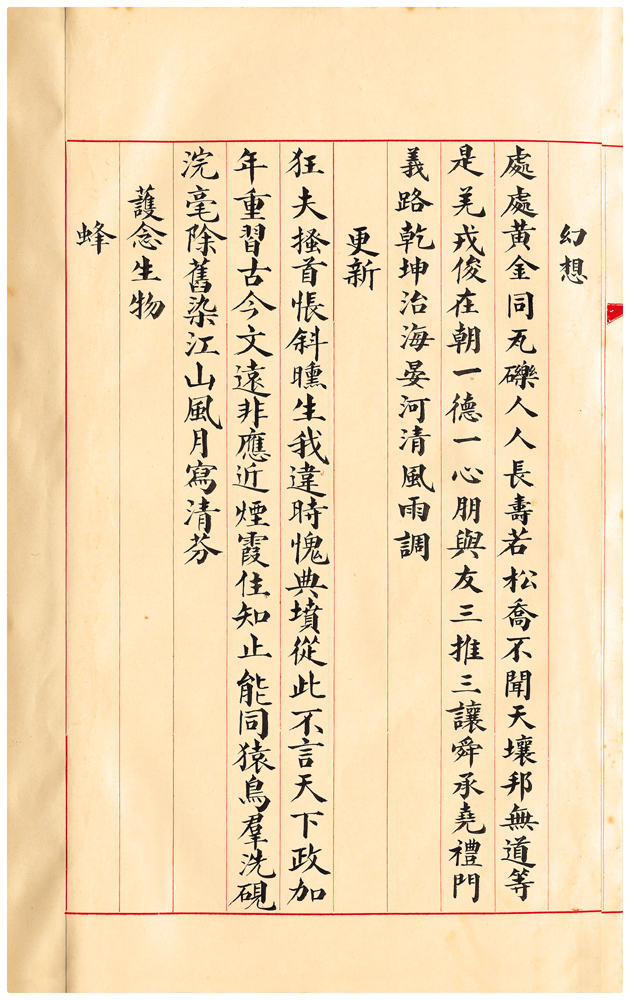 幻想
處處黃金同瓦礫人人長壽若松喬不聞天壤邦無道等
是羌戎俊在朝一德一心朋與友三推三讓舜承堯禮門
義路乾坤治海晏河清風雨調
更新
狂夫搔首悵斜曛生我違時愧典墳從此不言天下政加
年重習古今文遠非應近煙霞住知止能同猿鳥羣洗硯
浣毫除舊染江山風月寫清芬
護念生物
蜂